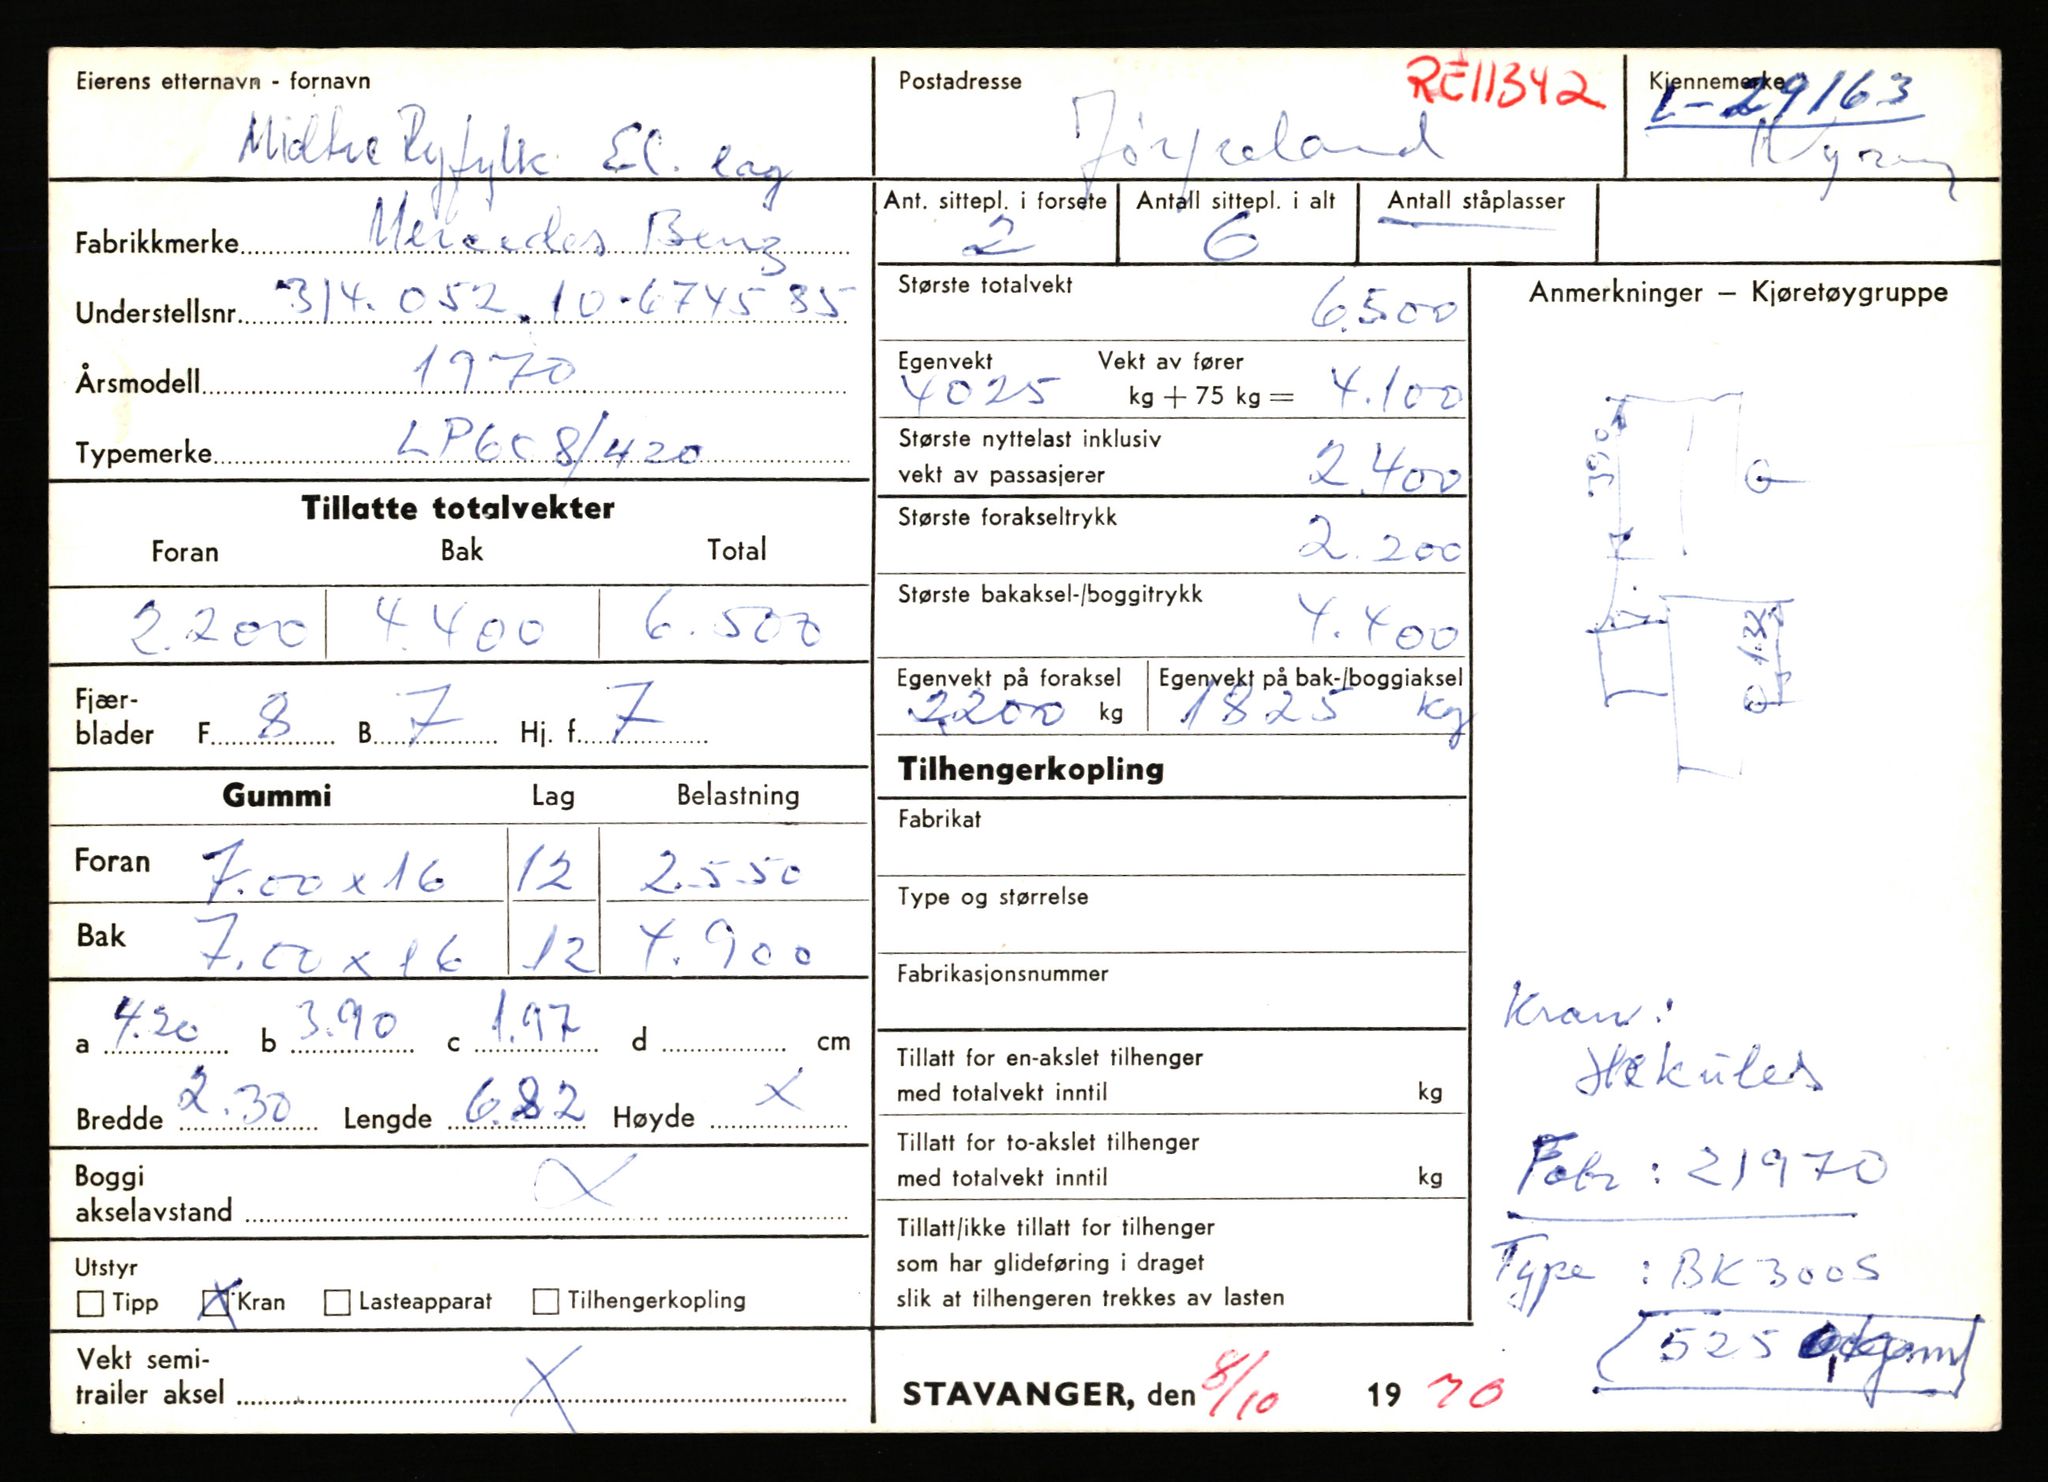 Eierens etternavn - fornavn
Midtre Ryfylk El. lag
Postadresse
RE11342
Jørpeland
Kjennemerke
L-29163
Ny reg
Fabrikkmerke Mercedes Benz
Understellsnr. 314.052.10-674585
Årsmodell 1970
Typemerke LP608/420
Ant. sittepl. i forsete
2
Antall sittepl. i alt
6
Antall ståplasser
Største totalvekt 6.500
Egenvekt Vekt av fører
4025 kg + 75 kg = 4.100
Største nyttelast inklusiv
vekt av passasjerer 2.400
Største forakseltrykk 2.200
Største bakaksel-/boggitrykk 4.400
Egenvekt på foraksel
2200 kg
Egenvekt på bak-/boggiaksel
1825 kg
Tillatte totalvekter
Foran Bak Total
2.200 4.400 6.500
Fjær-
blader F. 8 B. 7 Hj. f. 7
Gummi Lag Belastning
Foran 7.00 x 16 12 2.550
Bak 7.00 x 16 12 4.900
a 4.20 b 3.90 c 1.97 d cm
Bredde 2.30 Lengde 6.82 Høyde x
Boggi
akselavstand x
Utstyr
Tipp x Kran Lasteapparat Tilhengerkopling
Vekt semi-
trailer aksel x
Tilhengerkopling
Fabrikat
Type og størrelse
Fabrikasjonsnummer
Tillatt for en-akslet tilhenger
med totalvekt inntil kg
Tillatt for to-akslet tilhenger
med totalvekt inntil kg
Tillatt/ikke tillatt for tilhenger
som har glideføring i draget
slik at tilhengeren trekkes av lasten
STAVANGER, den 8/10 19 70
Anmerkninger – Kjøretøygruppe
390
G
1.32
Kran:
Hekules
Fabr : 21970
Type : BK 300S
525